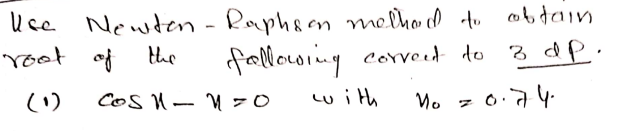 Use Newton - Raphson method to obtain
root of the following correct to 3 dp.
(1) cos x - x = 0 with x₀ = 0.74.